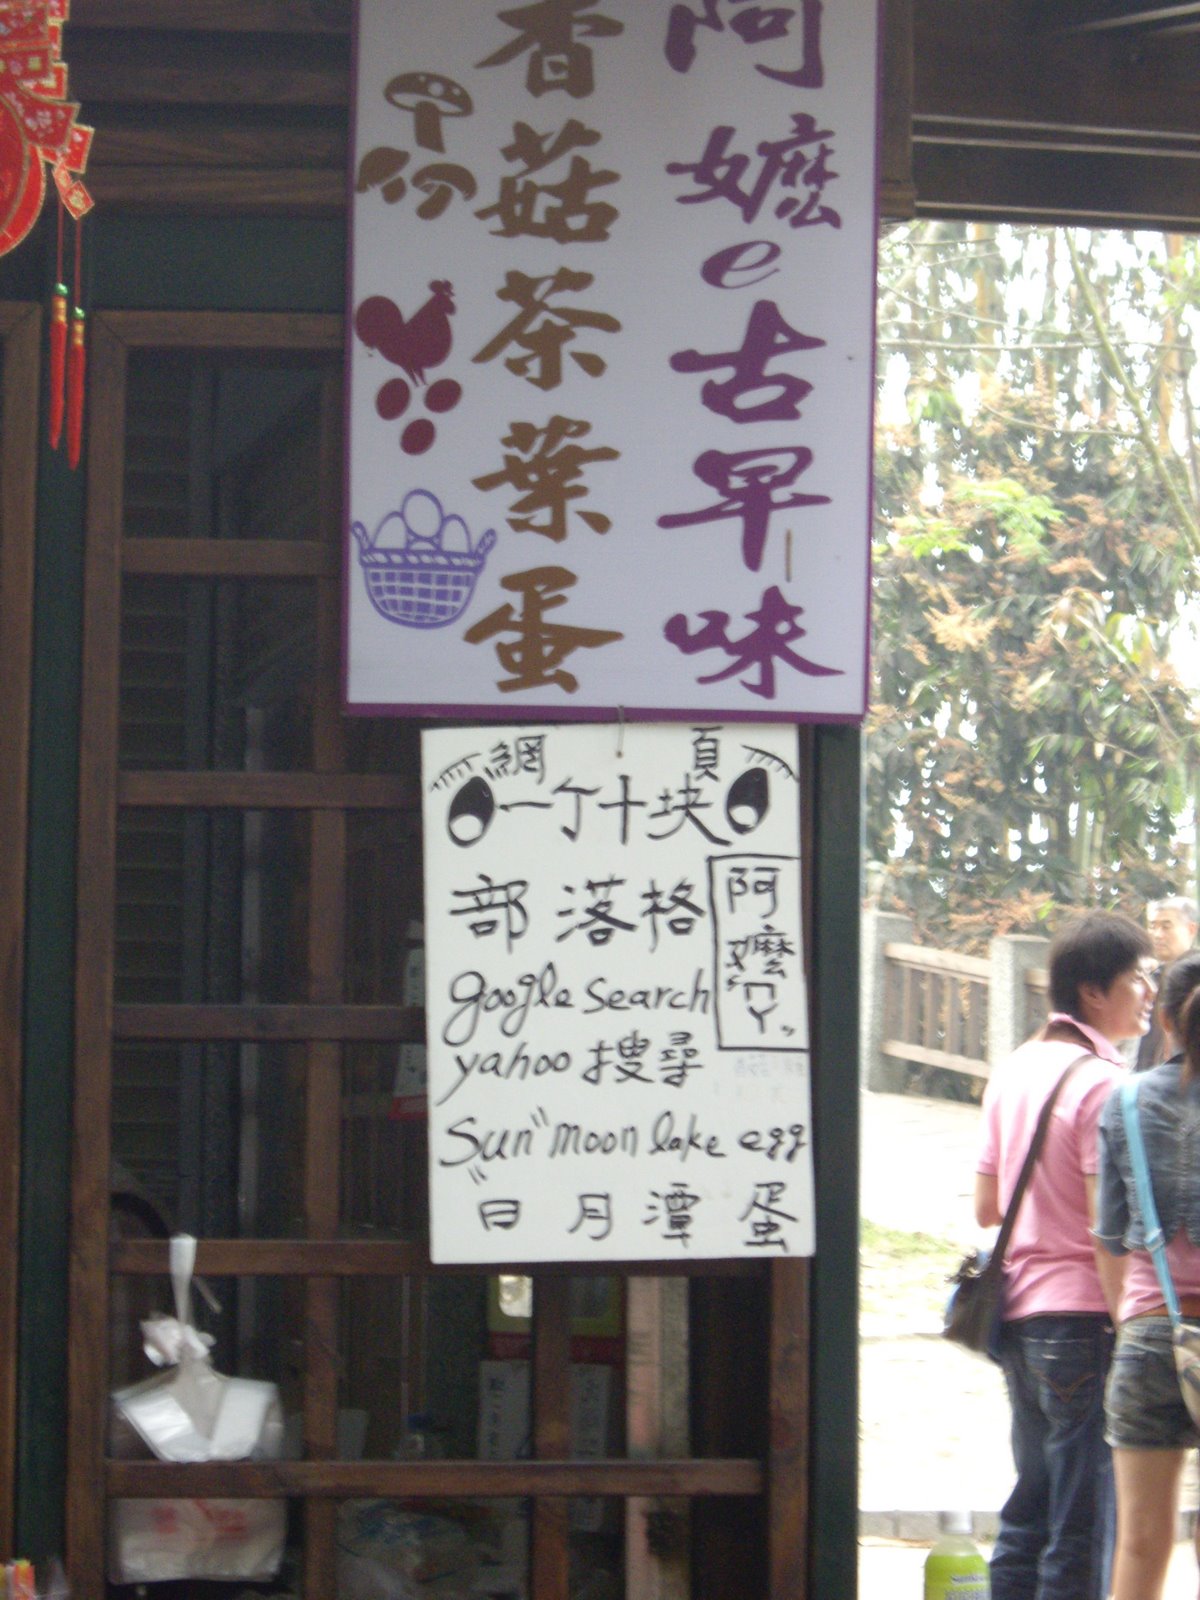 阿嬤e古早味
香菇茶葉蛋
網 頁
一丁十块
部落格
阿嬤"ㄇㄚ"
google search
yahoo 搜尋
Sun"moon lake egg
"日月潭 蛋